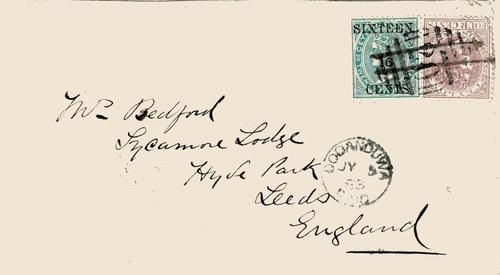 SIXTEEN
16
CENTS
Mrs Bedford
Sycamore Lodge
Hyde Park
Leeds
England
DODANDUWA
JY 5